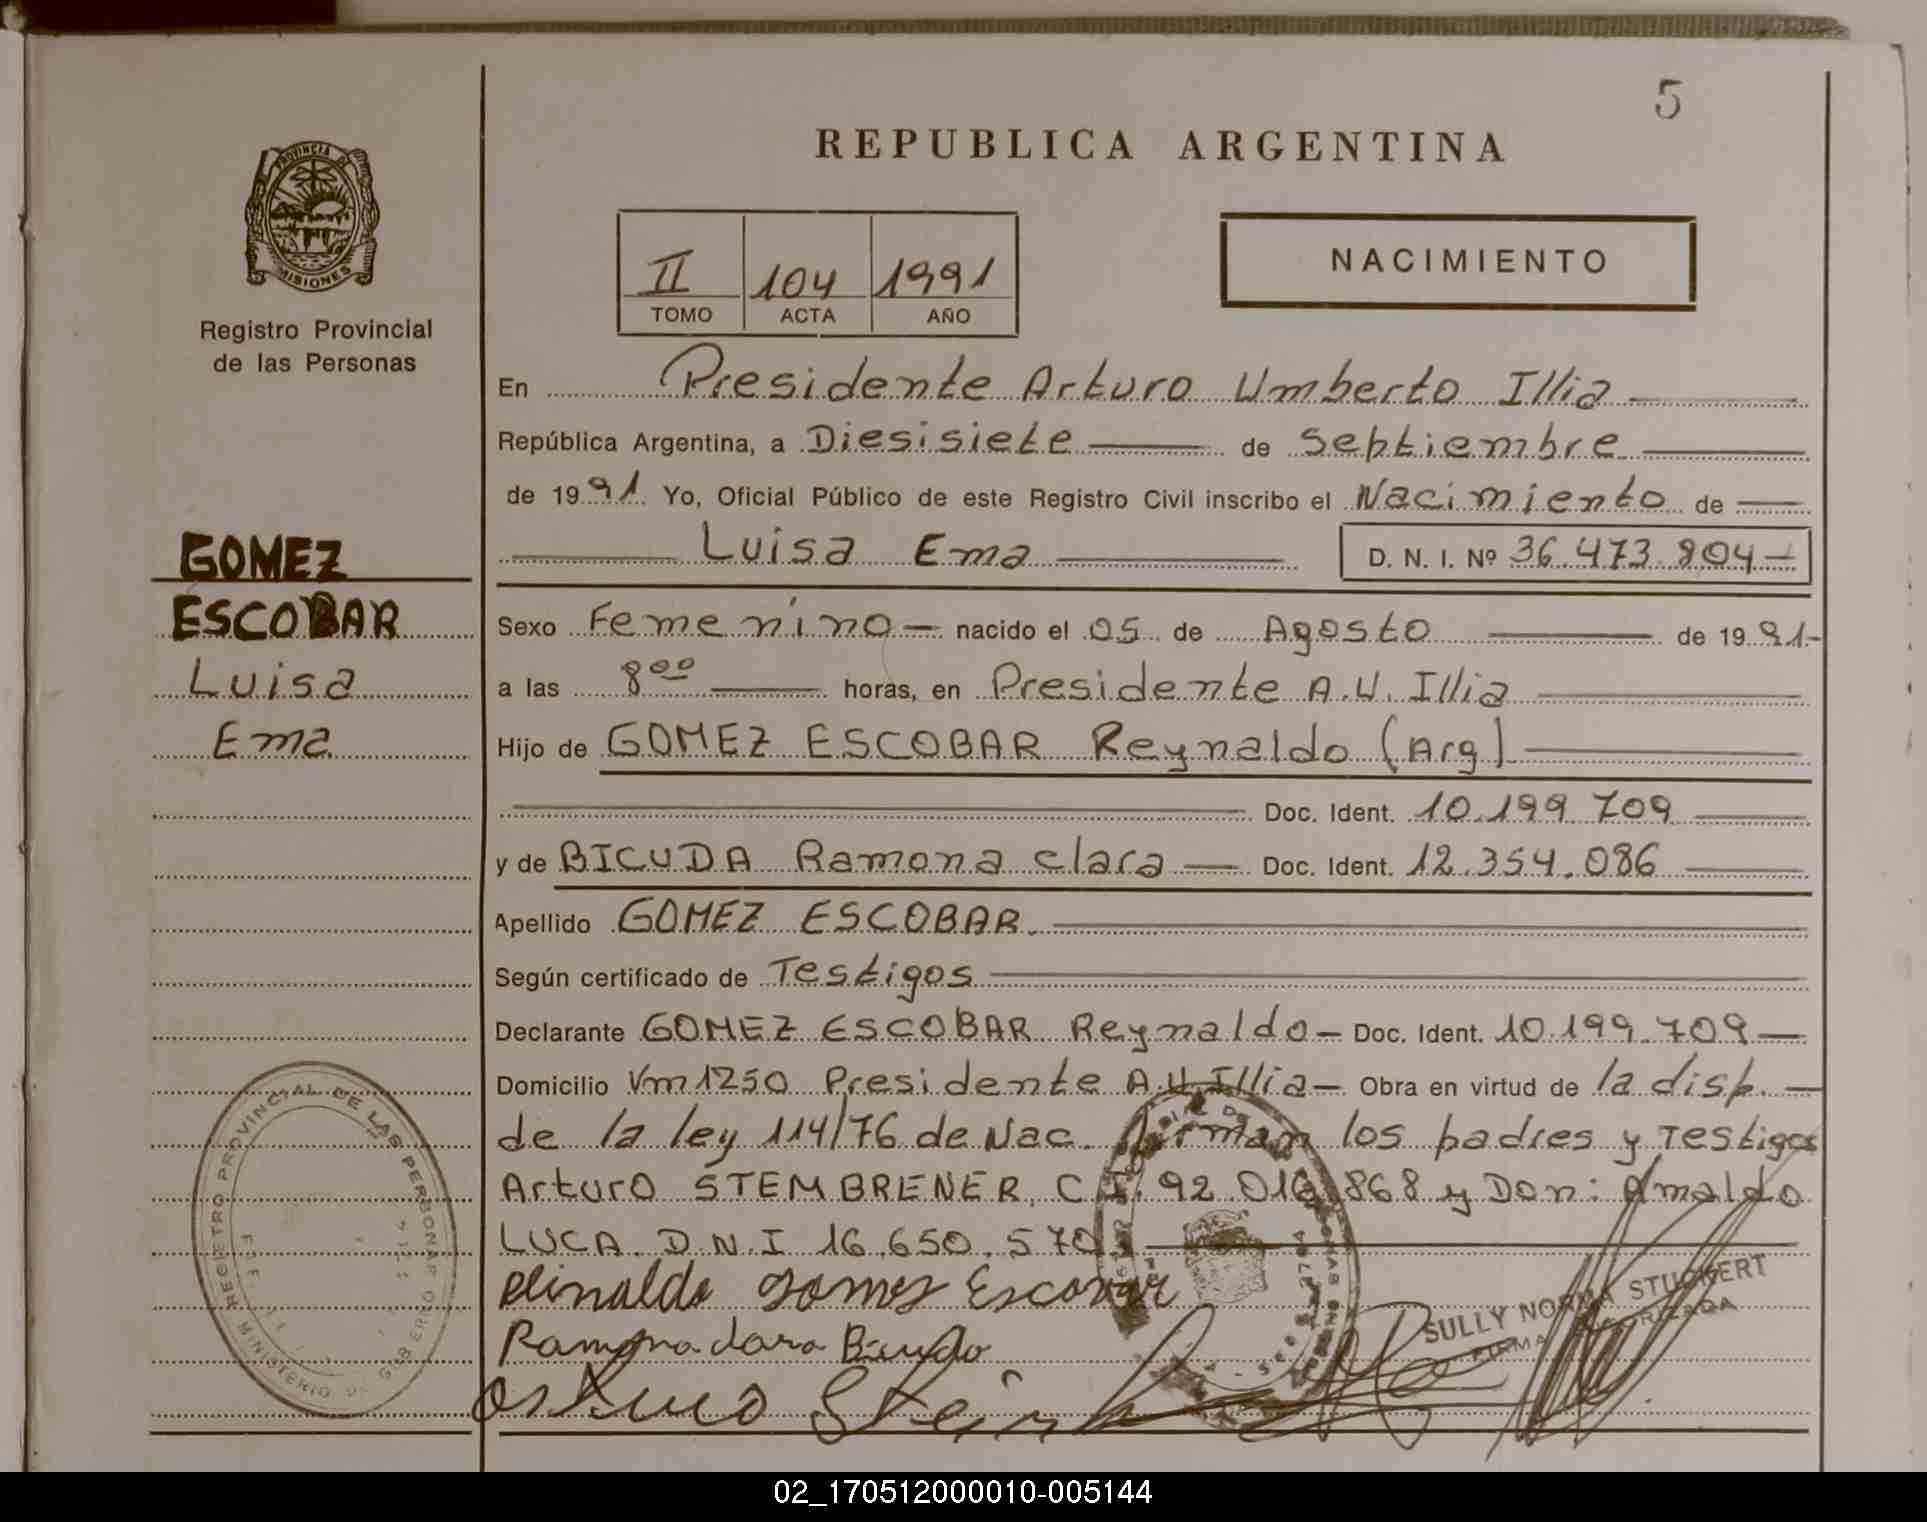 5
REPUBLICA ARGENTINA
PROVINCIA DE
MISIONES
Registro Provincial
de las Personas
II 104 1991
TOMO ACTA AÑO
NACIMIENTO
En Presidente Arturo Umberto Illia
República Argentina, a Diesisiete de Septiembre
de 1991 Yo, Oficial Público de este Registro Civil inscribo el Nacimiento de
Luisa Ema D. N. I. Nº 36.473.804
GOMEZ
ESCOBAR
Luisa
Ema
Sexo Femenino nacido el 05 de Agosto de 1991
a las 8⁰⁰ horas, en Presidente A.U. Illia
Hijo de GOMEZ ESCOBAR Reynaldo (Arg)
Doc. Ident. 10.199.709
y de BICUDA Ramona Clara Doc. Ident. 12.354.086
Apellido GOMEZ ESCOBAR.
Según certificado de Testigos
Declarante GOMEZ ESCOBAR Reynaldo Doc. Ident. 10.199.709
Domicilio Vm 1250 Presidente A.U. Illia Obra en virtud de la disp.
de la ley 114/76 de Nac. firman los padres y Testigos
Arturo STEMBRENER, C.I. 92.016.868 y Don: Arnaldo
LUCA D.N.I 16.650.570
Reinaldo Gomes Escovar
Ramona Clara Bicudo
REGISTRO PROVINCIAL DE LAS PERSONAS
MINISTERIO DE GOBIERNO
SULLY NORMA STUCKERT
FIRMA AUTORIZADA
02_170512000010-005144